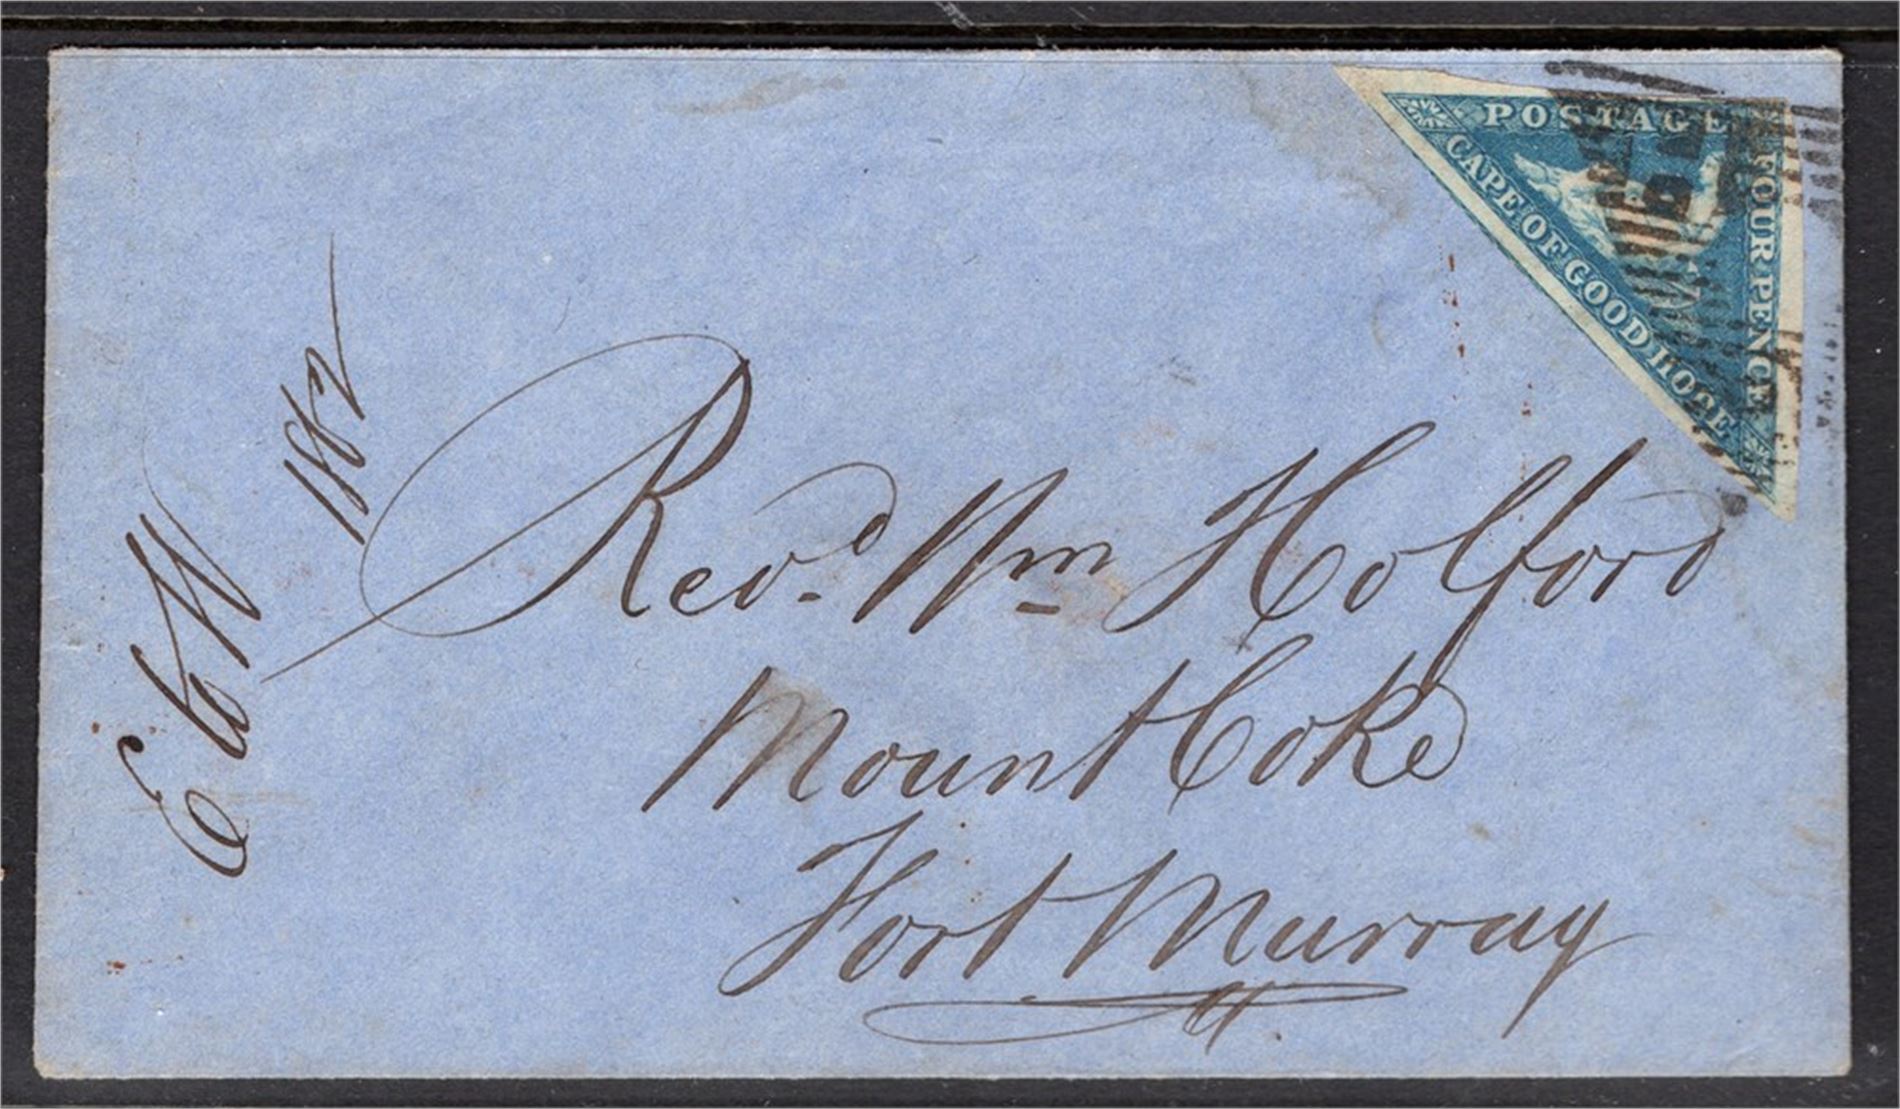 POSTAGE
FOUR PENCE
CAPE OF GOOD HOPE
Revd. Wm Holford
Mount Coke
Fort Murray